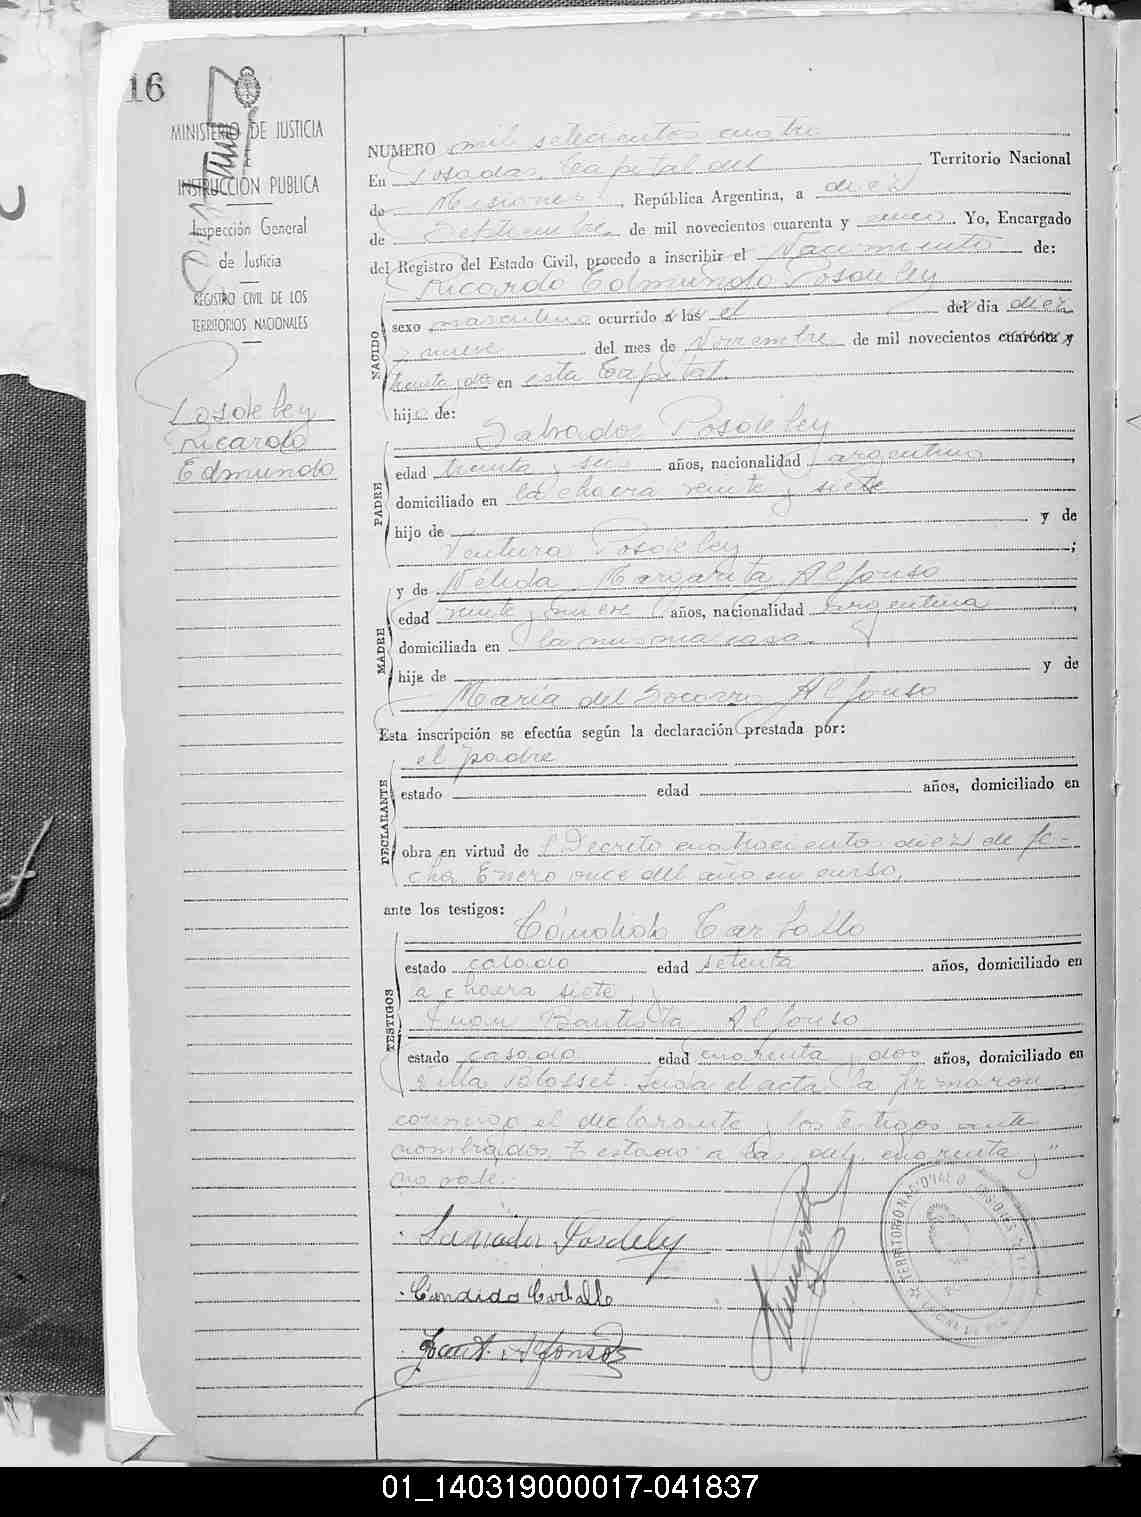 16
MINISTERIO DE JUSTICIA
INSTRUCCIÓN PUBLICA
Inspección General
de Justicia
REGISTRO CIVIL DE LOS
TERRITORIOS NACIONALES
Posdeley
Ricardo
Edmundo
NUMERO mil setecientos cuatro
En Posadas, Capital del Territorio Nacional
de Misiones, República Argentina, a diez
de Septiembre de mil novecientos cuarenta y cinco. Yo, Encargado
del Registro del Estado Civil, procedo a inscribir el Nacimiento de:
Ricardo Edmundo Posdeley
NACIDO
sexo masculino ocurrido a las el del día diez
y nueve del mes de Noviembre de mil novecientos cuarenta y
treinta y dos en esta Capital.
hijo de:
Salvador Posdeley
PADRE
edad treinta y seis años, nacionalidad argentino,
domiciliado en la chacra veinte y siete
hijo de y de
Ventura Posdeley;
y de Nélida Margarita Alfonso
MADRE
edad veinte y nueve años, nacionalidad argentina,
domiciliada en la misma casa.
hija de y de
María del Socorro Alfonso
Esta inscripción se efectúa según la declaración prestada por:
el padre
DECLARANTE
estado edad años, domiciliado en
obra en virtud de l Decreto cuatrocientos diez de fe-
cha Enero once del año en curso,
ante los testigos:
Cándido Carballo
TESTIGOS
estado casado edad setenta años, domiciliado en
a chacra siete, y
Juan Bautista Alfonso
estado casado edad cuarenta y dos años, domiciliado en
Villa Leida el acta la firmaron
conmigo el declarante y los testigos ante
nombrados. Testado "a las, del, cuarenta y"
no vale.-
Salvador Posdeley
Candido Carballo
Alfonso
TERRITORIO NACIONAL D MISIONES
01_140319000017-041837